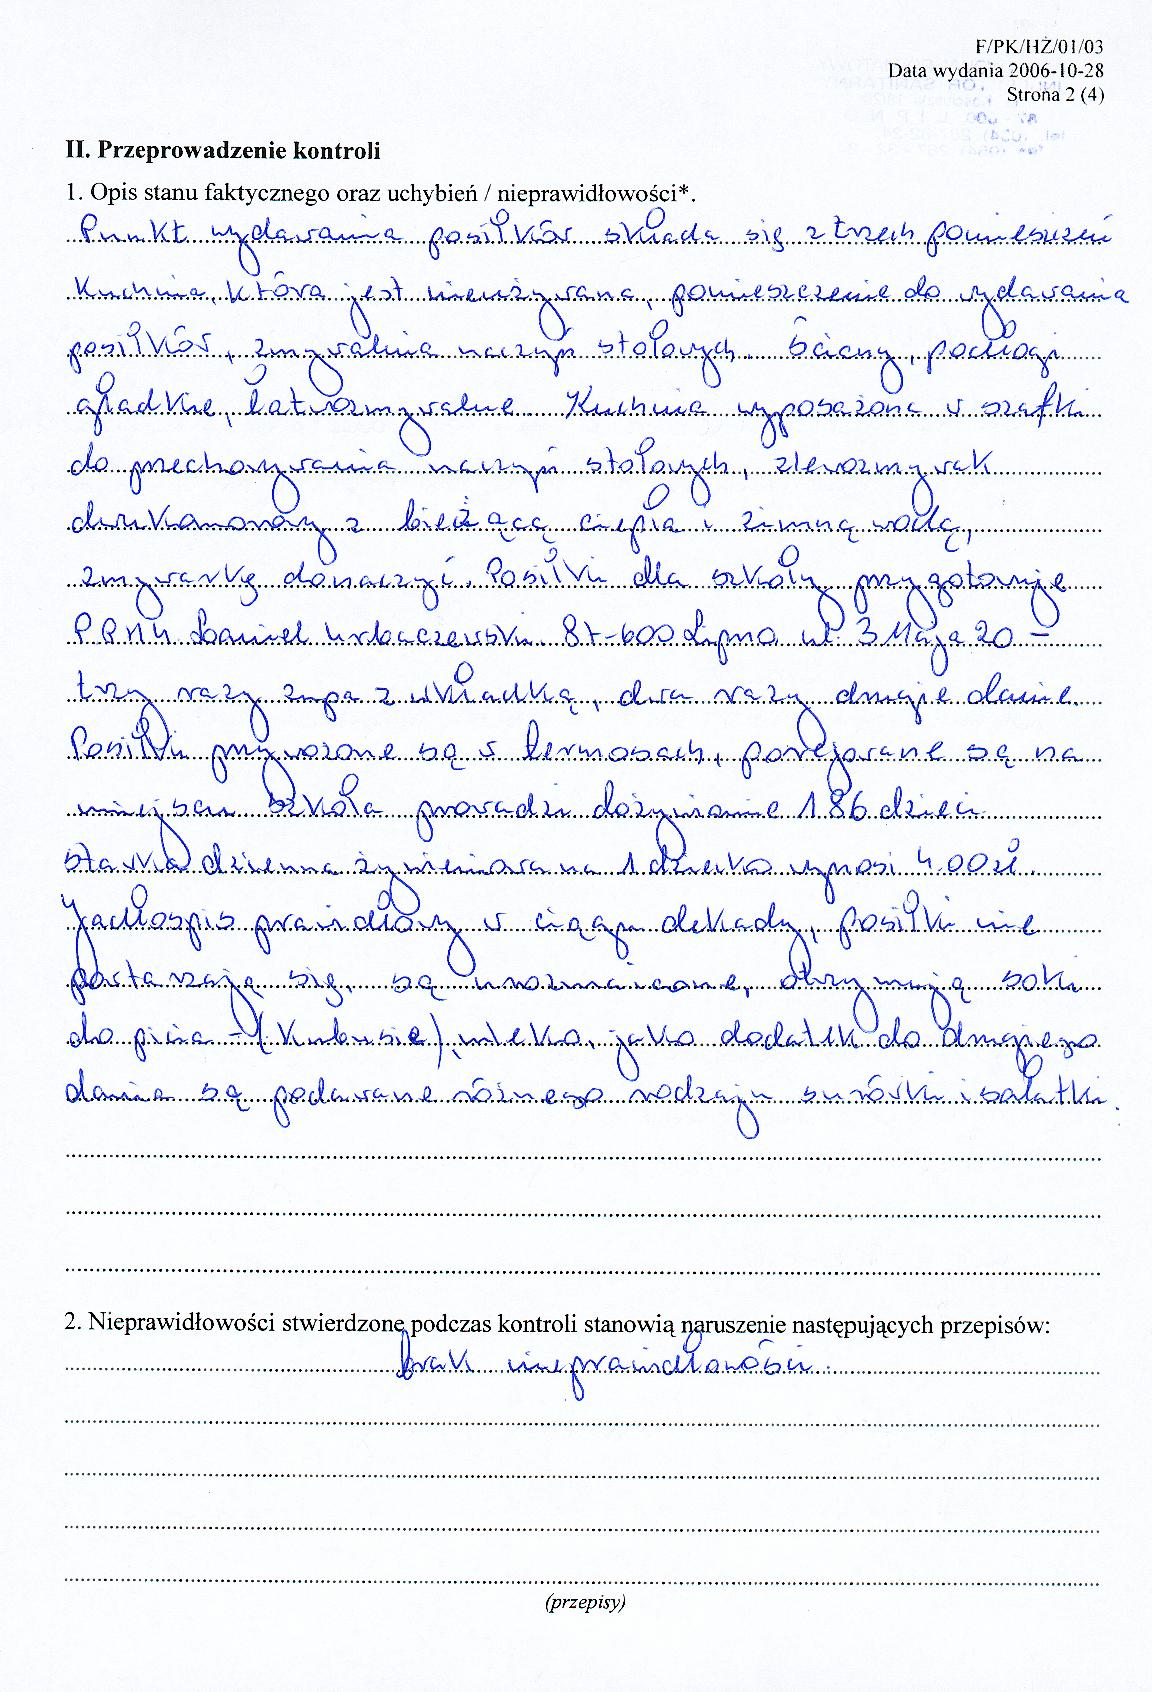 F/PK/HŻ/01/03
Data wydania 2006-10-28
Strona 2 (4)
II. Przeprowadzenie kontroli
1. Opis stanu faktycznego oraz uchybień / nieprawidłowości*.
Punkt wydawania posiłków składa się z trzech pomieszczeń
Kuchnia, która jest nieużywana, pomieszczenie do wydawania
posiłków, zmywalnia naczyń stołowych. Ściany, podłogi
gładkie, łatwozmywalne. Kuchnia wyposażona w szafki
do przechowywania naczyń stołowych, zlewozmywak
dwukomorowy z bieżącą ciepłą i zimną wodą,
zmywarkę do naczyń. Posiłki dla szkoły przygotowuje
PPHU Daniel Urbaczewski 87-600 Lipno ul. 3 Maja 20 –
trzy razy zupa z wkładką, dwa razy drugie danie.
Posiłki przywożone są w termosach, porcjowane są na
miejscu szkoła prowadzi dożywianie 186 dzieci
stawka dzienna żywieniowa na 1 dziecko wynosi 4.00 zł.
Jadłospis prawidłowy w ciągu dekady, posiłki nie
powtarzają się, są urozmaicone, otrzymują soki
do picia – (Kubusie), mleko, jako dodatek do drugiego
dania są podawane różnego rodzaju surówki i sałatki.
2. Nieprawidłowości stwierdzone podczas kontroli stanowią naruszenie następujących przepisów:
brak nieprawidłowości.
(przepisy)